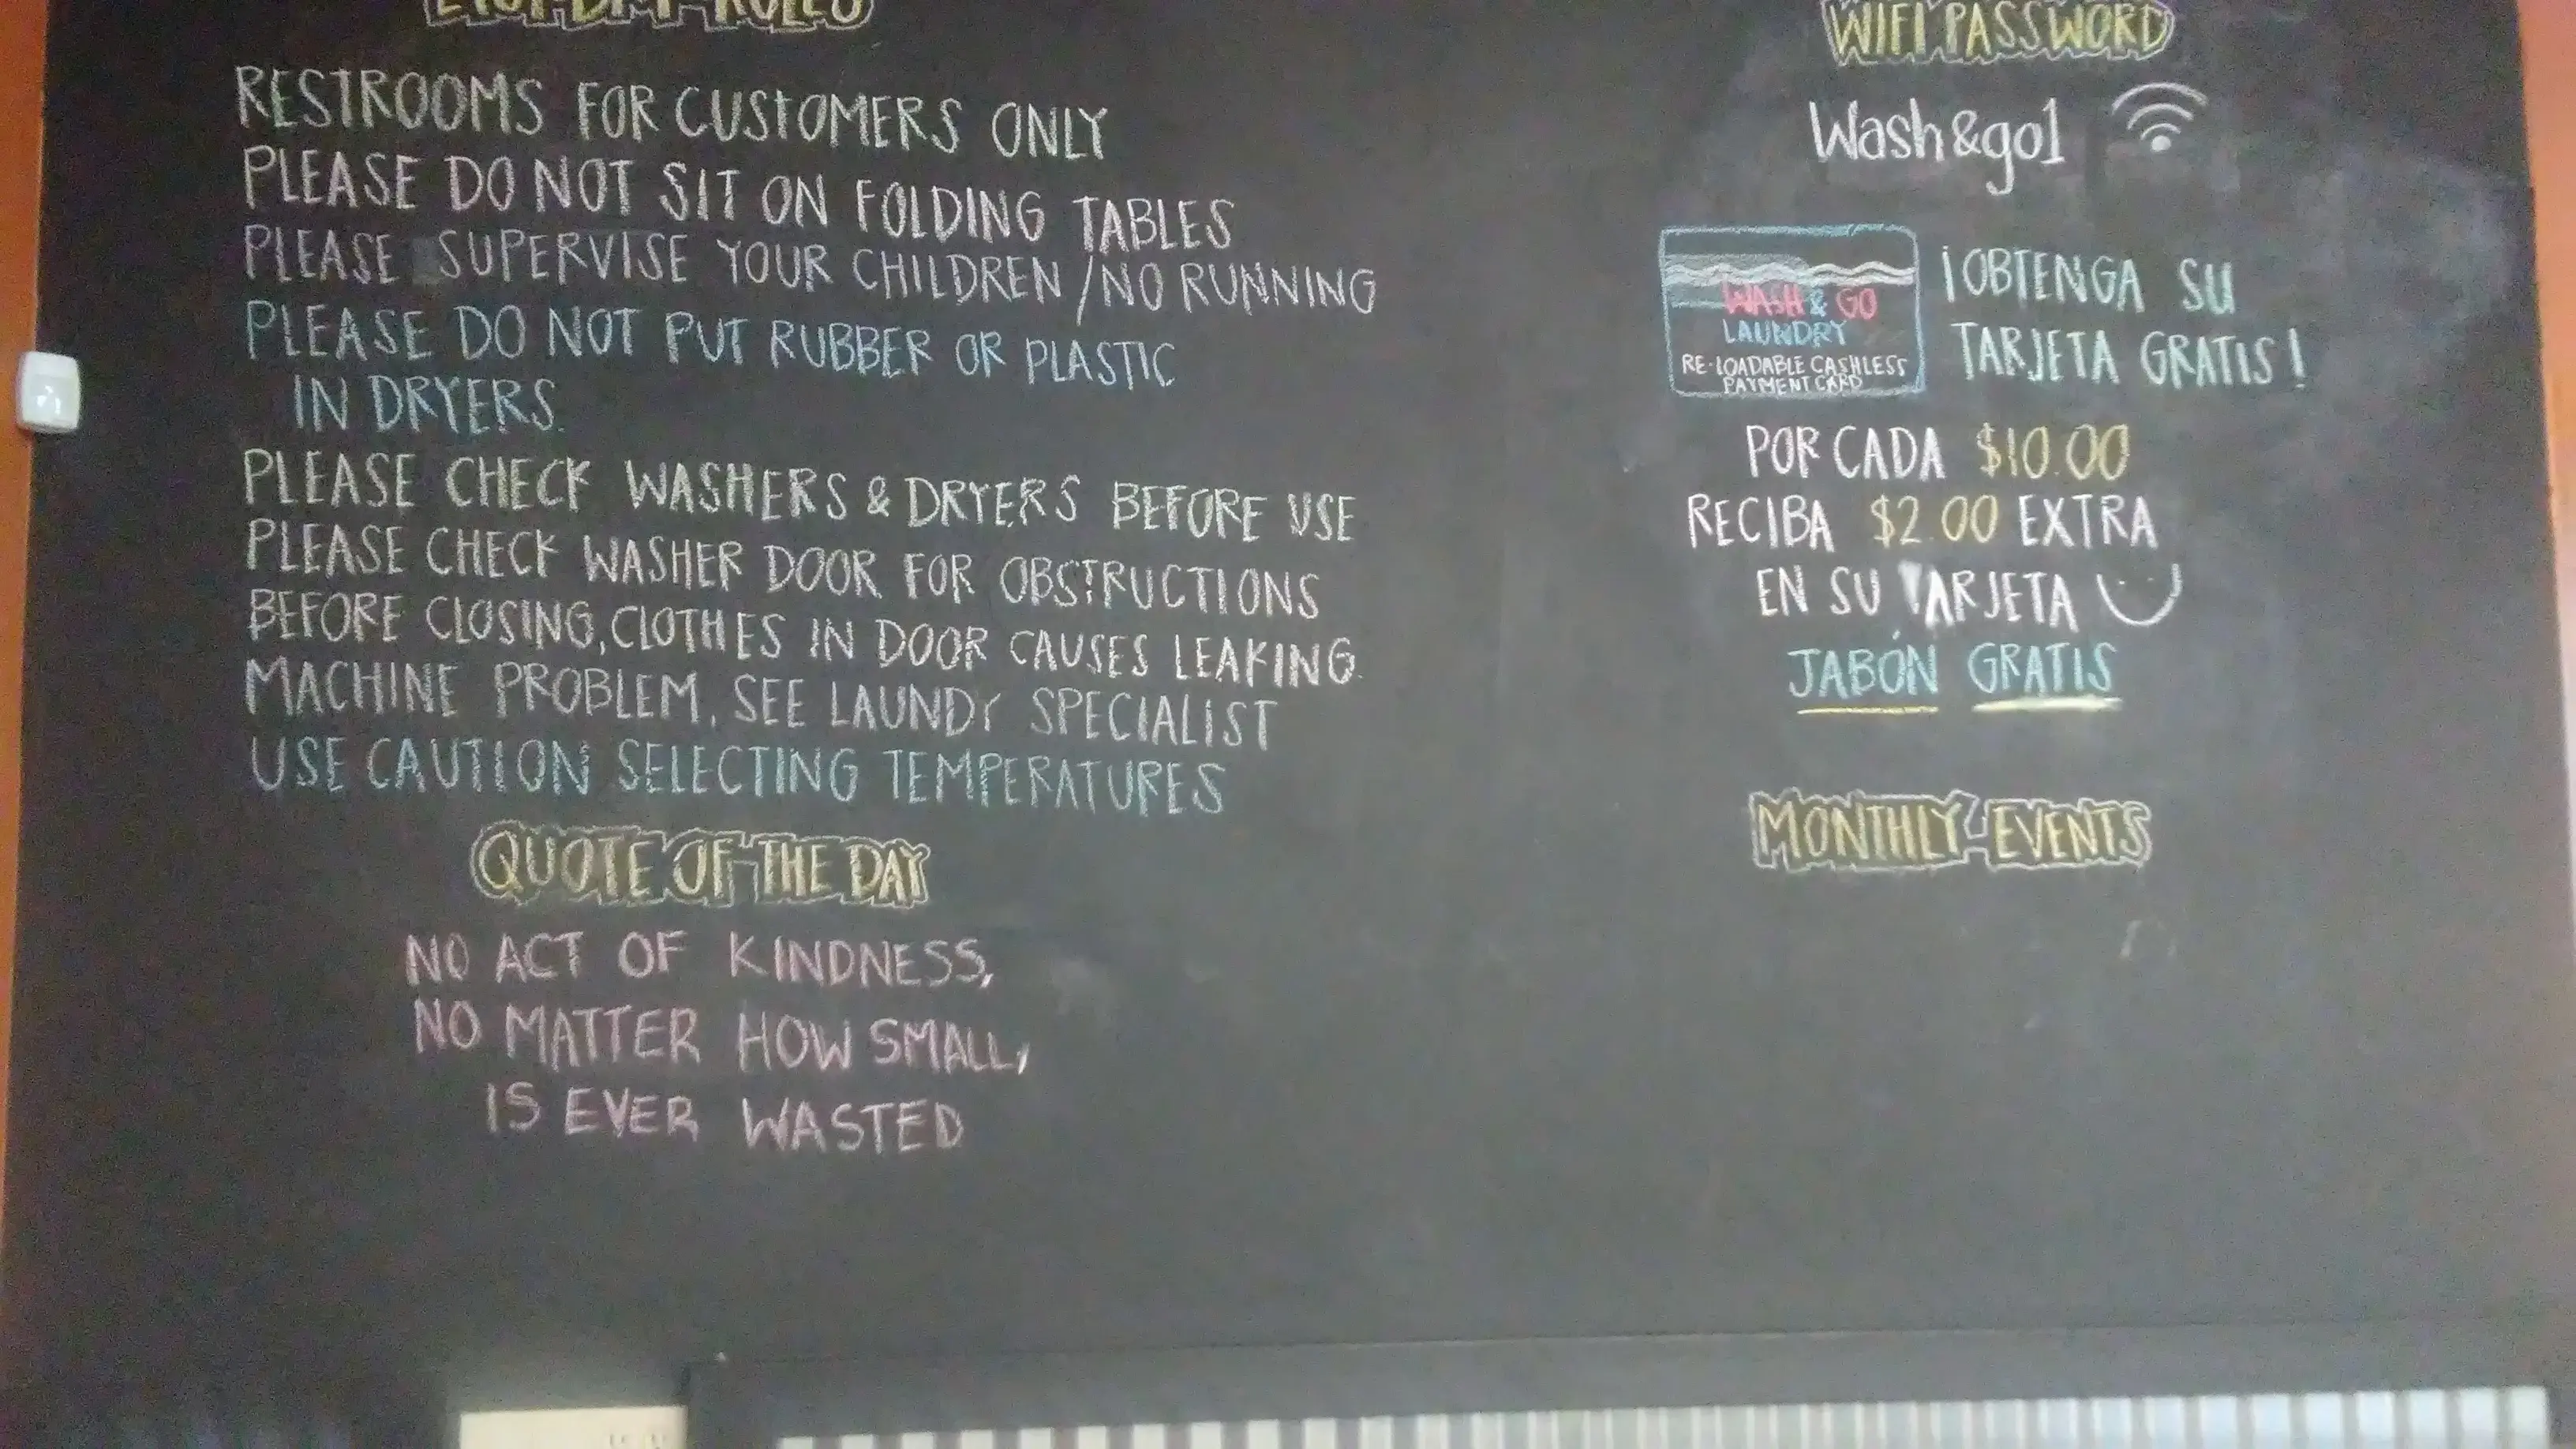 RULES
RESTROOMS FOR CUSTOMERS ONLY
PLEASE DO NOT SIT ON FOLDING TABLES
PLEASE SUPERVISE YOUR CHILDREN / NO RUNNING
PLEASE DO NOT PUT RUBBER OR PLASTIC
IN DRYERS.
PLEASE CHECK WASHERS & DRYERS BEFORE USE
PLEASE CHECK WASHER DOOR FOR OBSTRUCTIONS
BEFORE CLOSING, CLOTHES IN DOOR CAUSES LEAKING.
MACHINE PROBLEM, SEE LAUNDY SPECIALIST
USE CAUTION SELECTING TEMPERATURES
QUOTE OF THE DAY
NO ACT OF KINDNESS,
NO MATTER HOW SMALL,
IS EVER WASTED
WIFI PASSWORD
Wash&go1
WASH & GO
LAUNDRY
RE-LOADABLE CASHLESS
PAYMENT CARD
¡OBTENGA SU
TARJETA GRATIS!
POR CADA $10.00
RECIBA $2.00 EXTRA
EN SU TARJETA
JABÓN GRATIS
MONTHLY-EVENTS